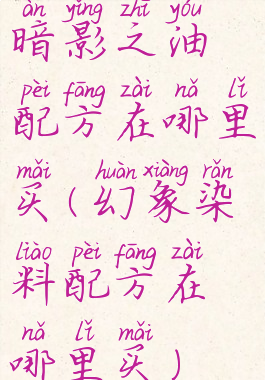 àn yǐng zhī yóu
暗影之油
pèi fāng zài nǎ lǐ
配方在哪里
mǎi huàn xiàng rǎn
买（幻象染
liào pèi fāng zài
料配方在
nǎ lǐ mǎi
哪里买）